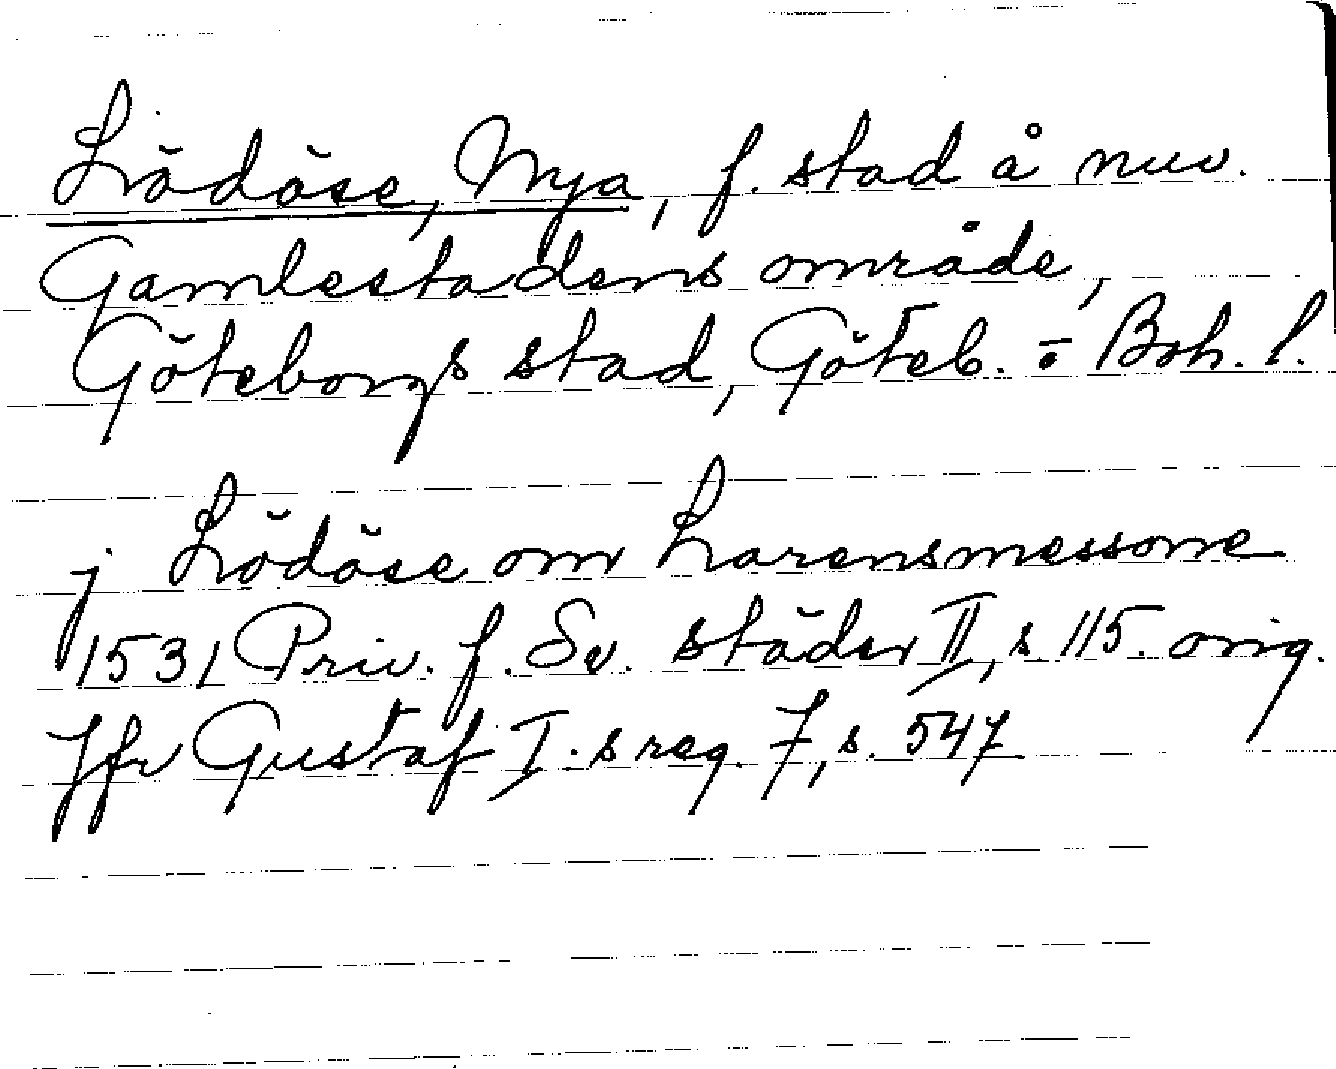 Lödöse, Nya, f. stad å nuv.
Gamlestadens område,
Göteborgs stad, Göteb. o Boh. l.
j Lödöse om Larensmessone
1531 Priv. f. Sv. städer II, s 115. orig.
Jfr Gustaf I:s reg. 7, s. 547